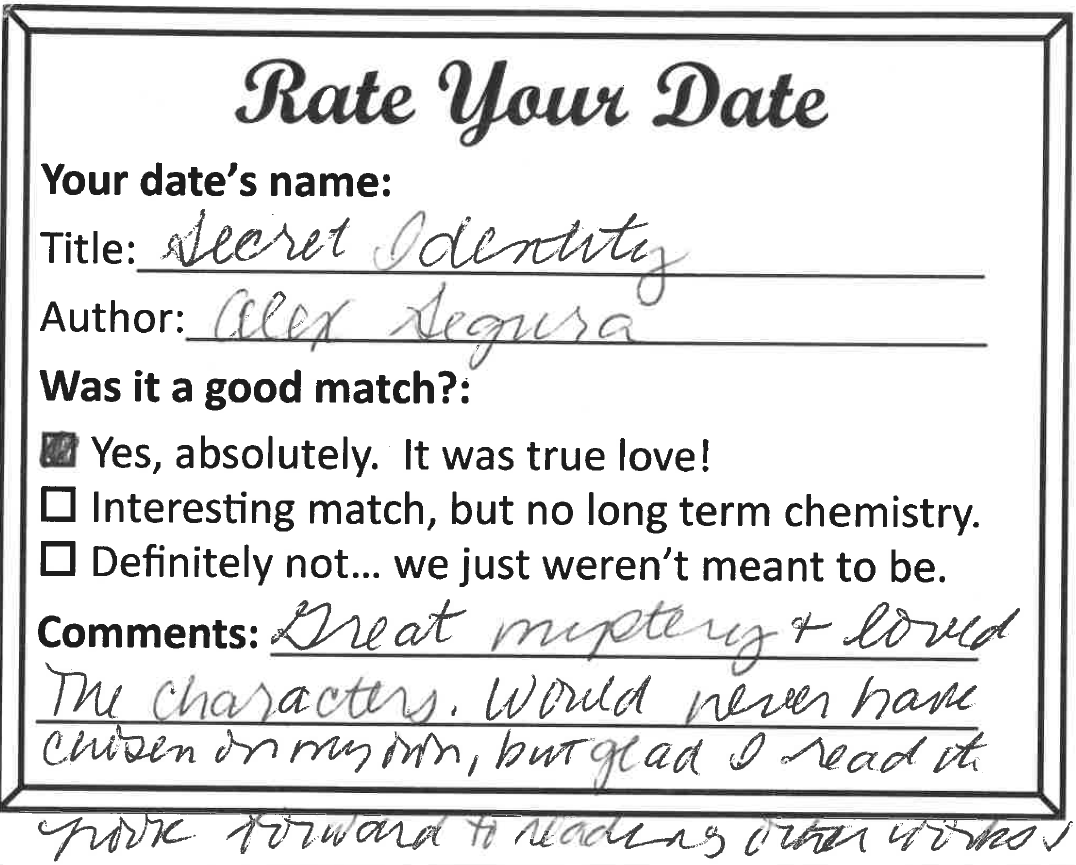 Rate Your Date
Your date's name:
Title: Secret Identity
Author: Alex Segura
Was it a good match?:
Yes, absolutely. It was true love!
Interesting match, but no long term chemistry.
Definitely not... we just weren't meant to be.
Comments: Great mystery + loved
The characters. Would never have
chosen on my own, but glad I read it.
look forward to reading other works.